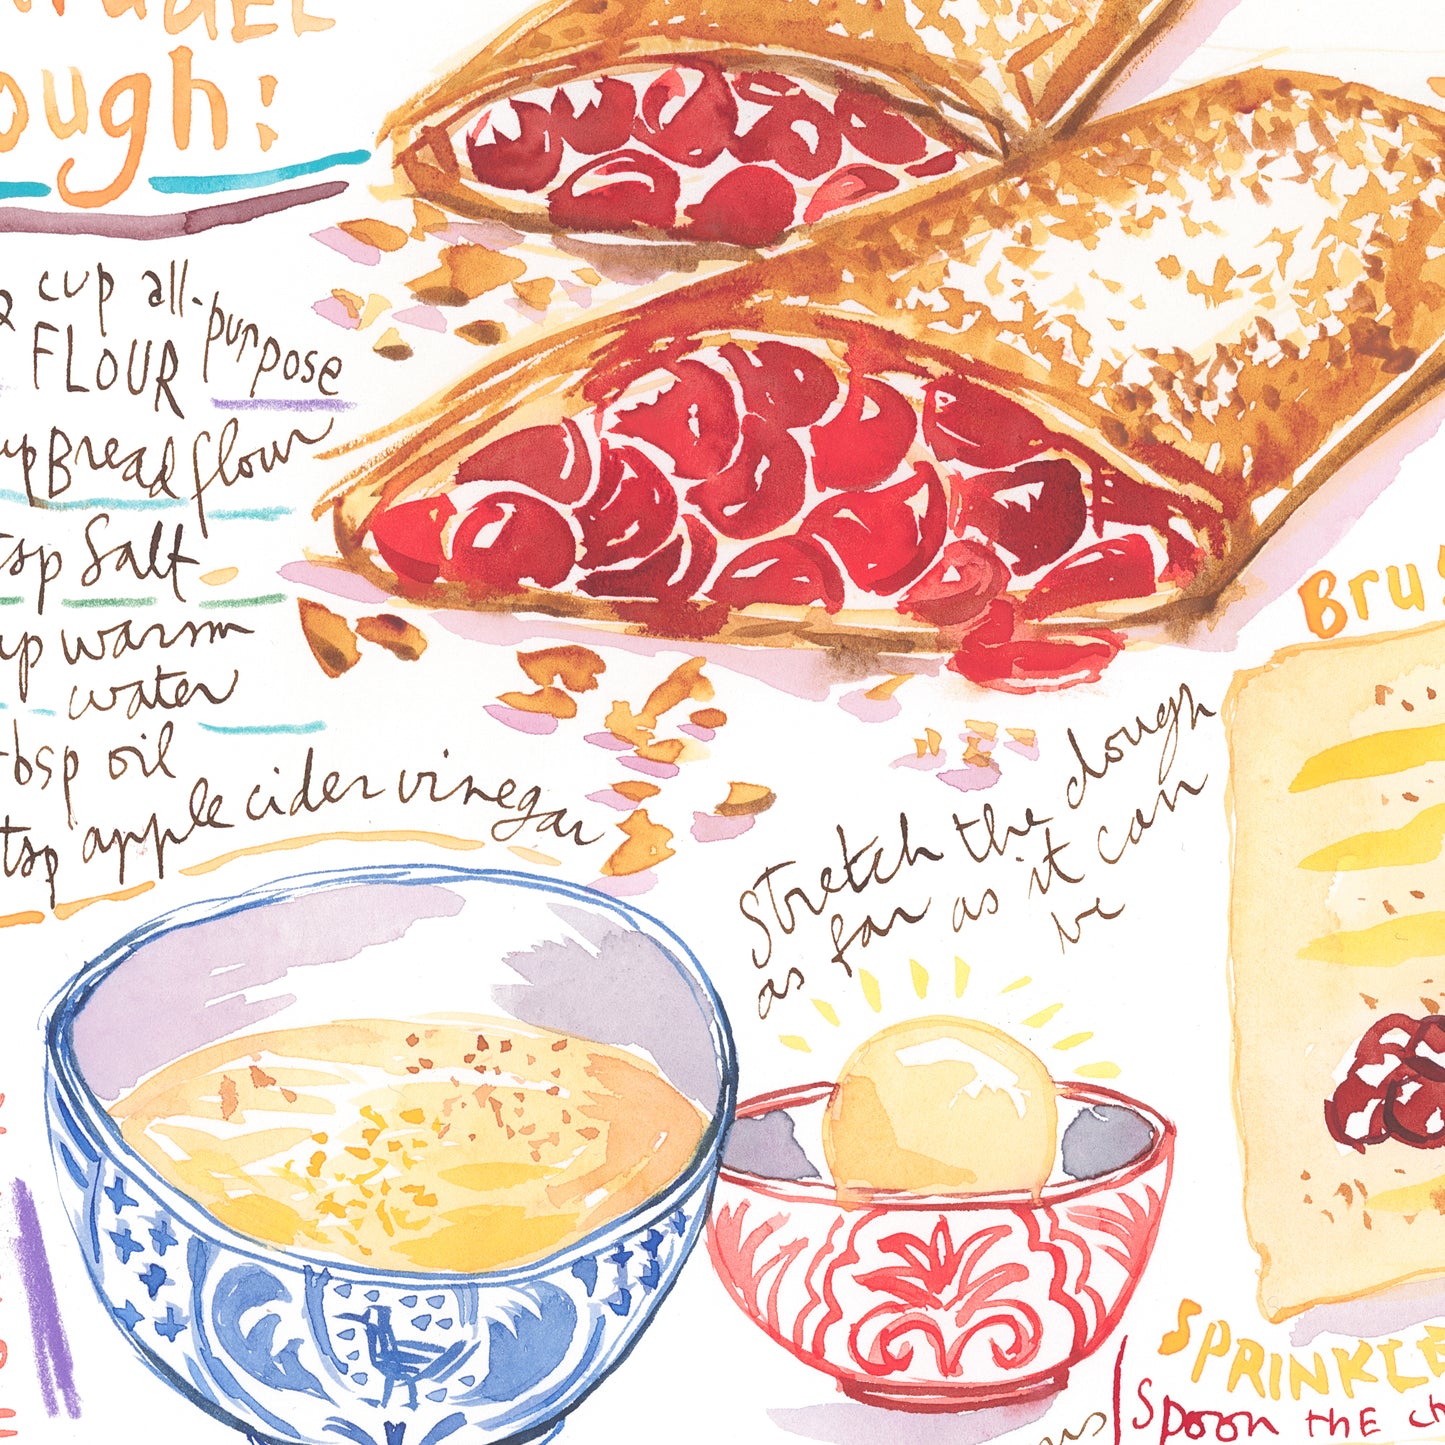 ough:
cup all-purpose
FLOUR
Bread flour
tsp Salt
warm
water
tbsp oil
tsp apple cider vinegar
Stretch the dough
as far as it can
be
Bru
SPRINKLE
Spoon thE ch